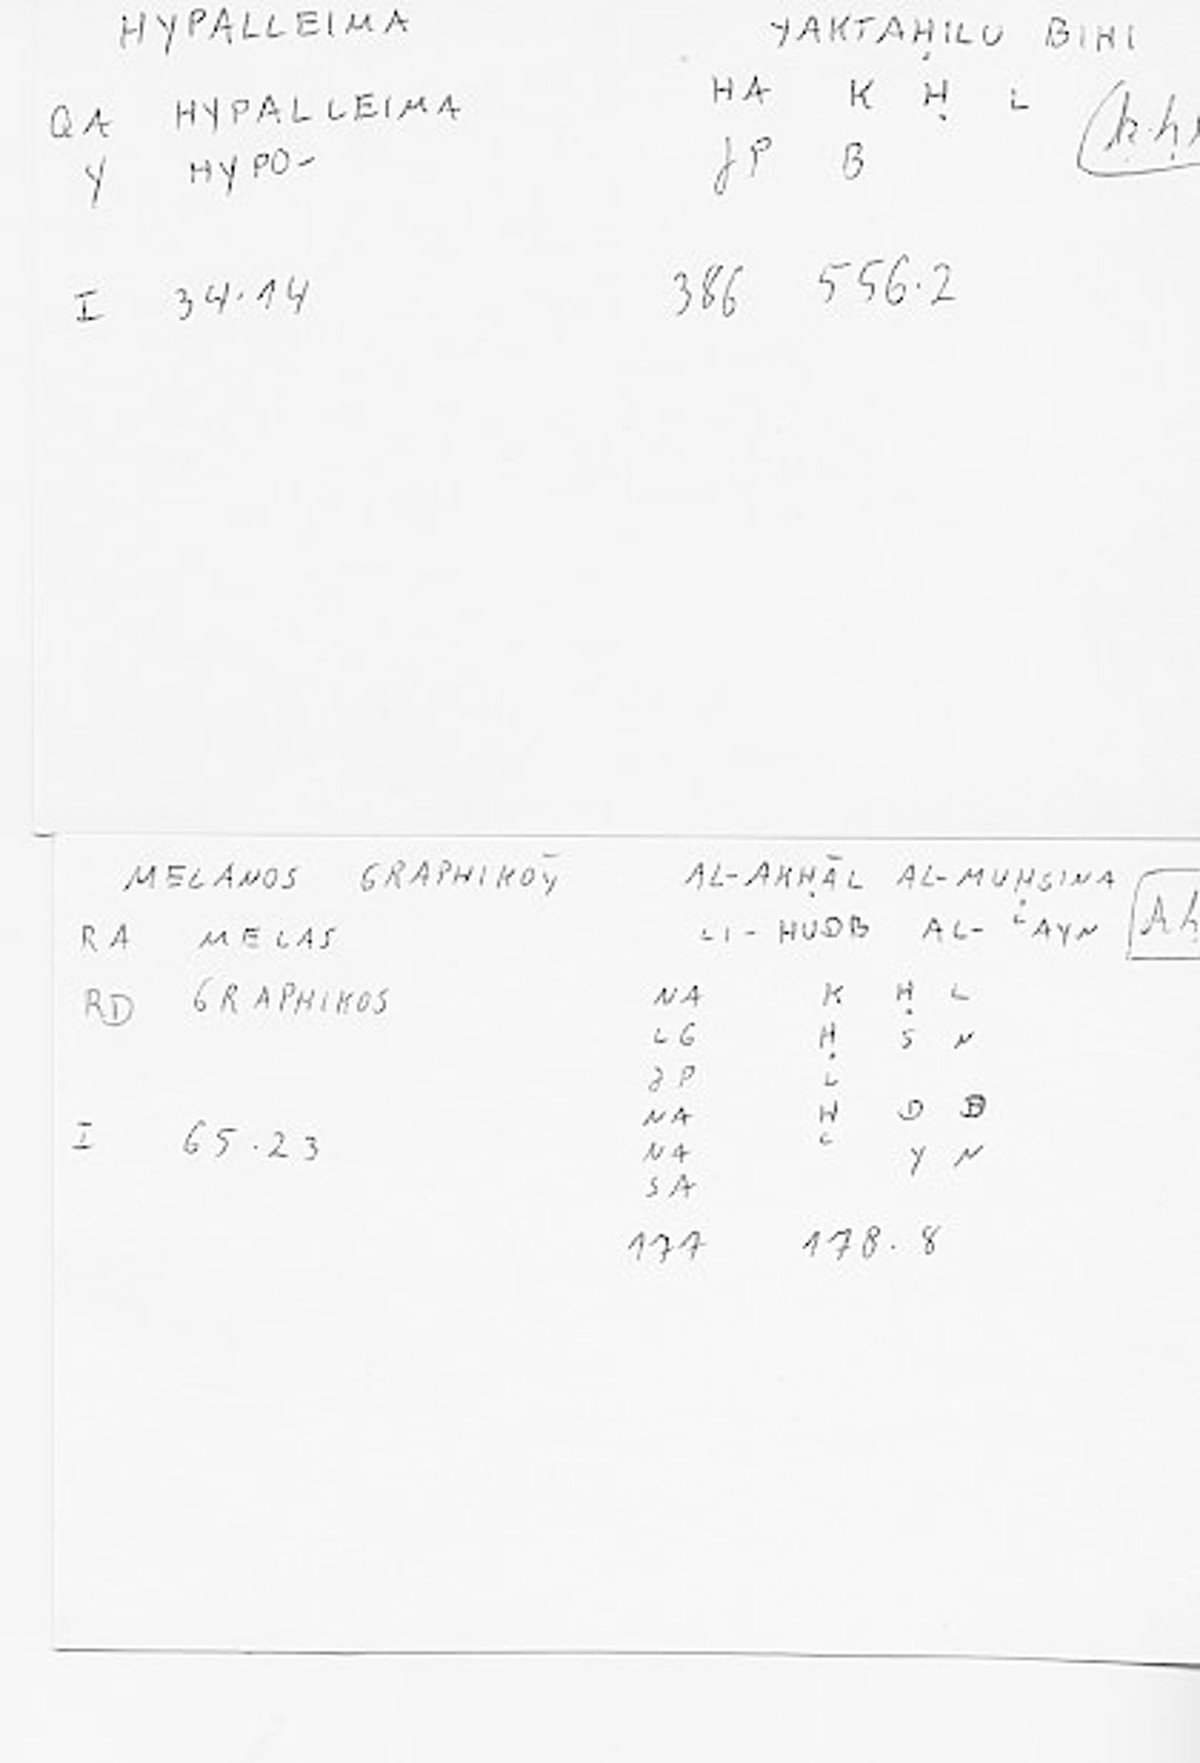 HYPALLEIMA YAKTAḤILU BIHI
QA HYPALLEIMA HA K Ḥ L
Y HYPO- JP B
I 34.14 386 556.2
MELANOS GRAPHIKOȲ AL-AKḤĀL AL-MUḤSINA
RA MELAS LI-HUDB AL-ʿAYN
RD GRAPHIKOS NA K Ḥ L
LG Ḥ S N
JP L
NA H D B
I 65.23 NA ʿ Y N
SA
177 178.8